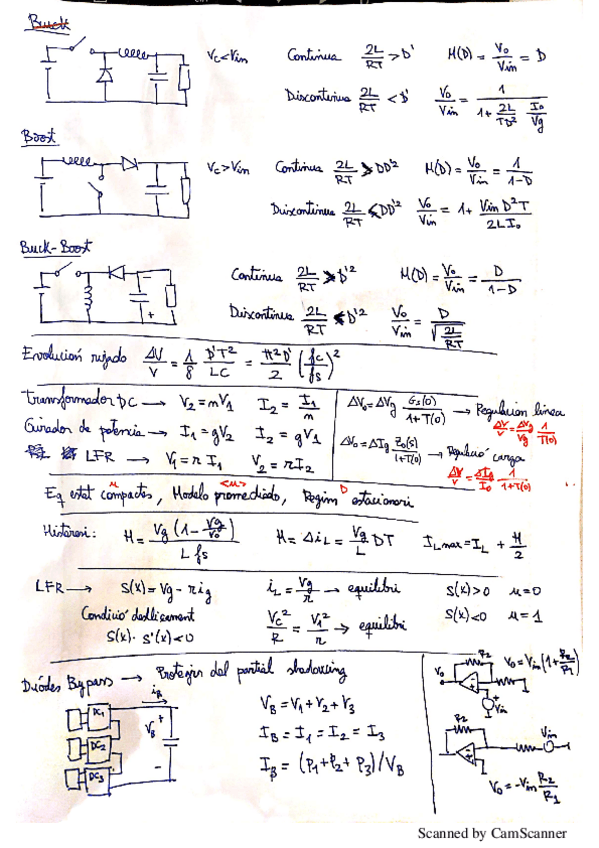 Buck
Vc<Vin Continua 2L/RT > D' M(D) = Vo/Vin = D
Discontinua 2L/RT < D' Vo/Vin = 1/(1+ 2L/TD² Io/Vg)
Boost
Vc>Vin Continua 2L/RT > DD'² M(D) = Vo/Vin = 1/(1-D)
Discontinua 2L/RT < DD'² Vo/Vin = 1+ Vin D²T/2LI₀
Buck-Boost
Continua 2L/RT > D'² M(D) = Vo/Vin = D/(1-D)
Discontinua 2L/RT < D'² Vo/Vin = D/√(2L/RT)
- +
Evolucion rizado ΔV/V = 1/8 D'T²/LC = π²D'/2 (fc/fs)²
transformador DC → V₂=nV₁ I₂ = I₁/n
Girador de potencia → I₁=gV₂ I₂ = gV₁
LFR → V₁=rI₁ V₂=rI₂
ΔVo=ΔVg Gs(0)/(1+T(0)) → Regulacion linea
ΔV/V = ΔVg/Vg 1/T(0)
ΔVo=ΔIg Zo(s)/(1+T(0)) → Regulació carga
ΔV/V = ΔIo/Io 1/(1+T(0))
μ <μ> D
Eq estat compactes, Modelo promediado, Regim estacionari
Histeresi: H= Vg(1-Vg/Vo)/L fs H= ΔiL= Vg/L DT ILmax=IL + H/2
LFR → S(x)=Vg-rig iL= Vg/r → equilibri S(x)>0 u=0
Condició desllisament Vc²/R = V₁²/r → equilibri S(x)<0 u=1
S(x)·S'(x)<0
Díodes Bypass → Protegir del partial shadowing
iR
DC1
DC2
DC3
VB
+
-
VB = V₁+V₂+V₃
IB = I₁ = I₂ = I₃
IB = (P₁+P₂+P₃)/VB
R2 Vo=Vin(1+R2/R1)
Vo
Vin
R2 Vin
Vo=-Vin R2/R1
Scanned by CamScanner